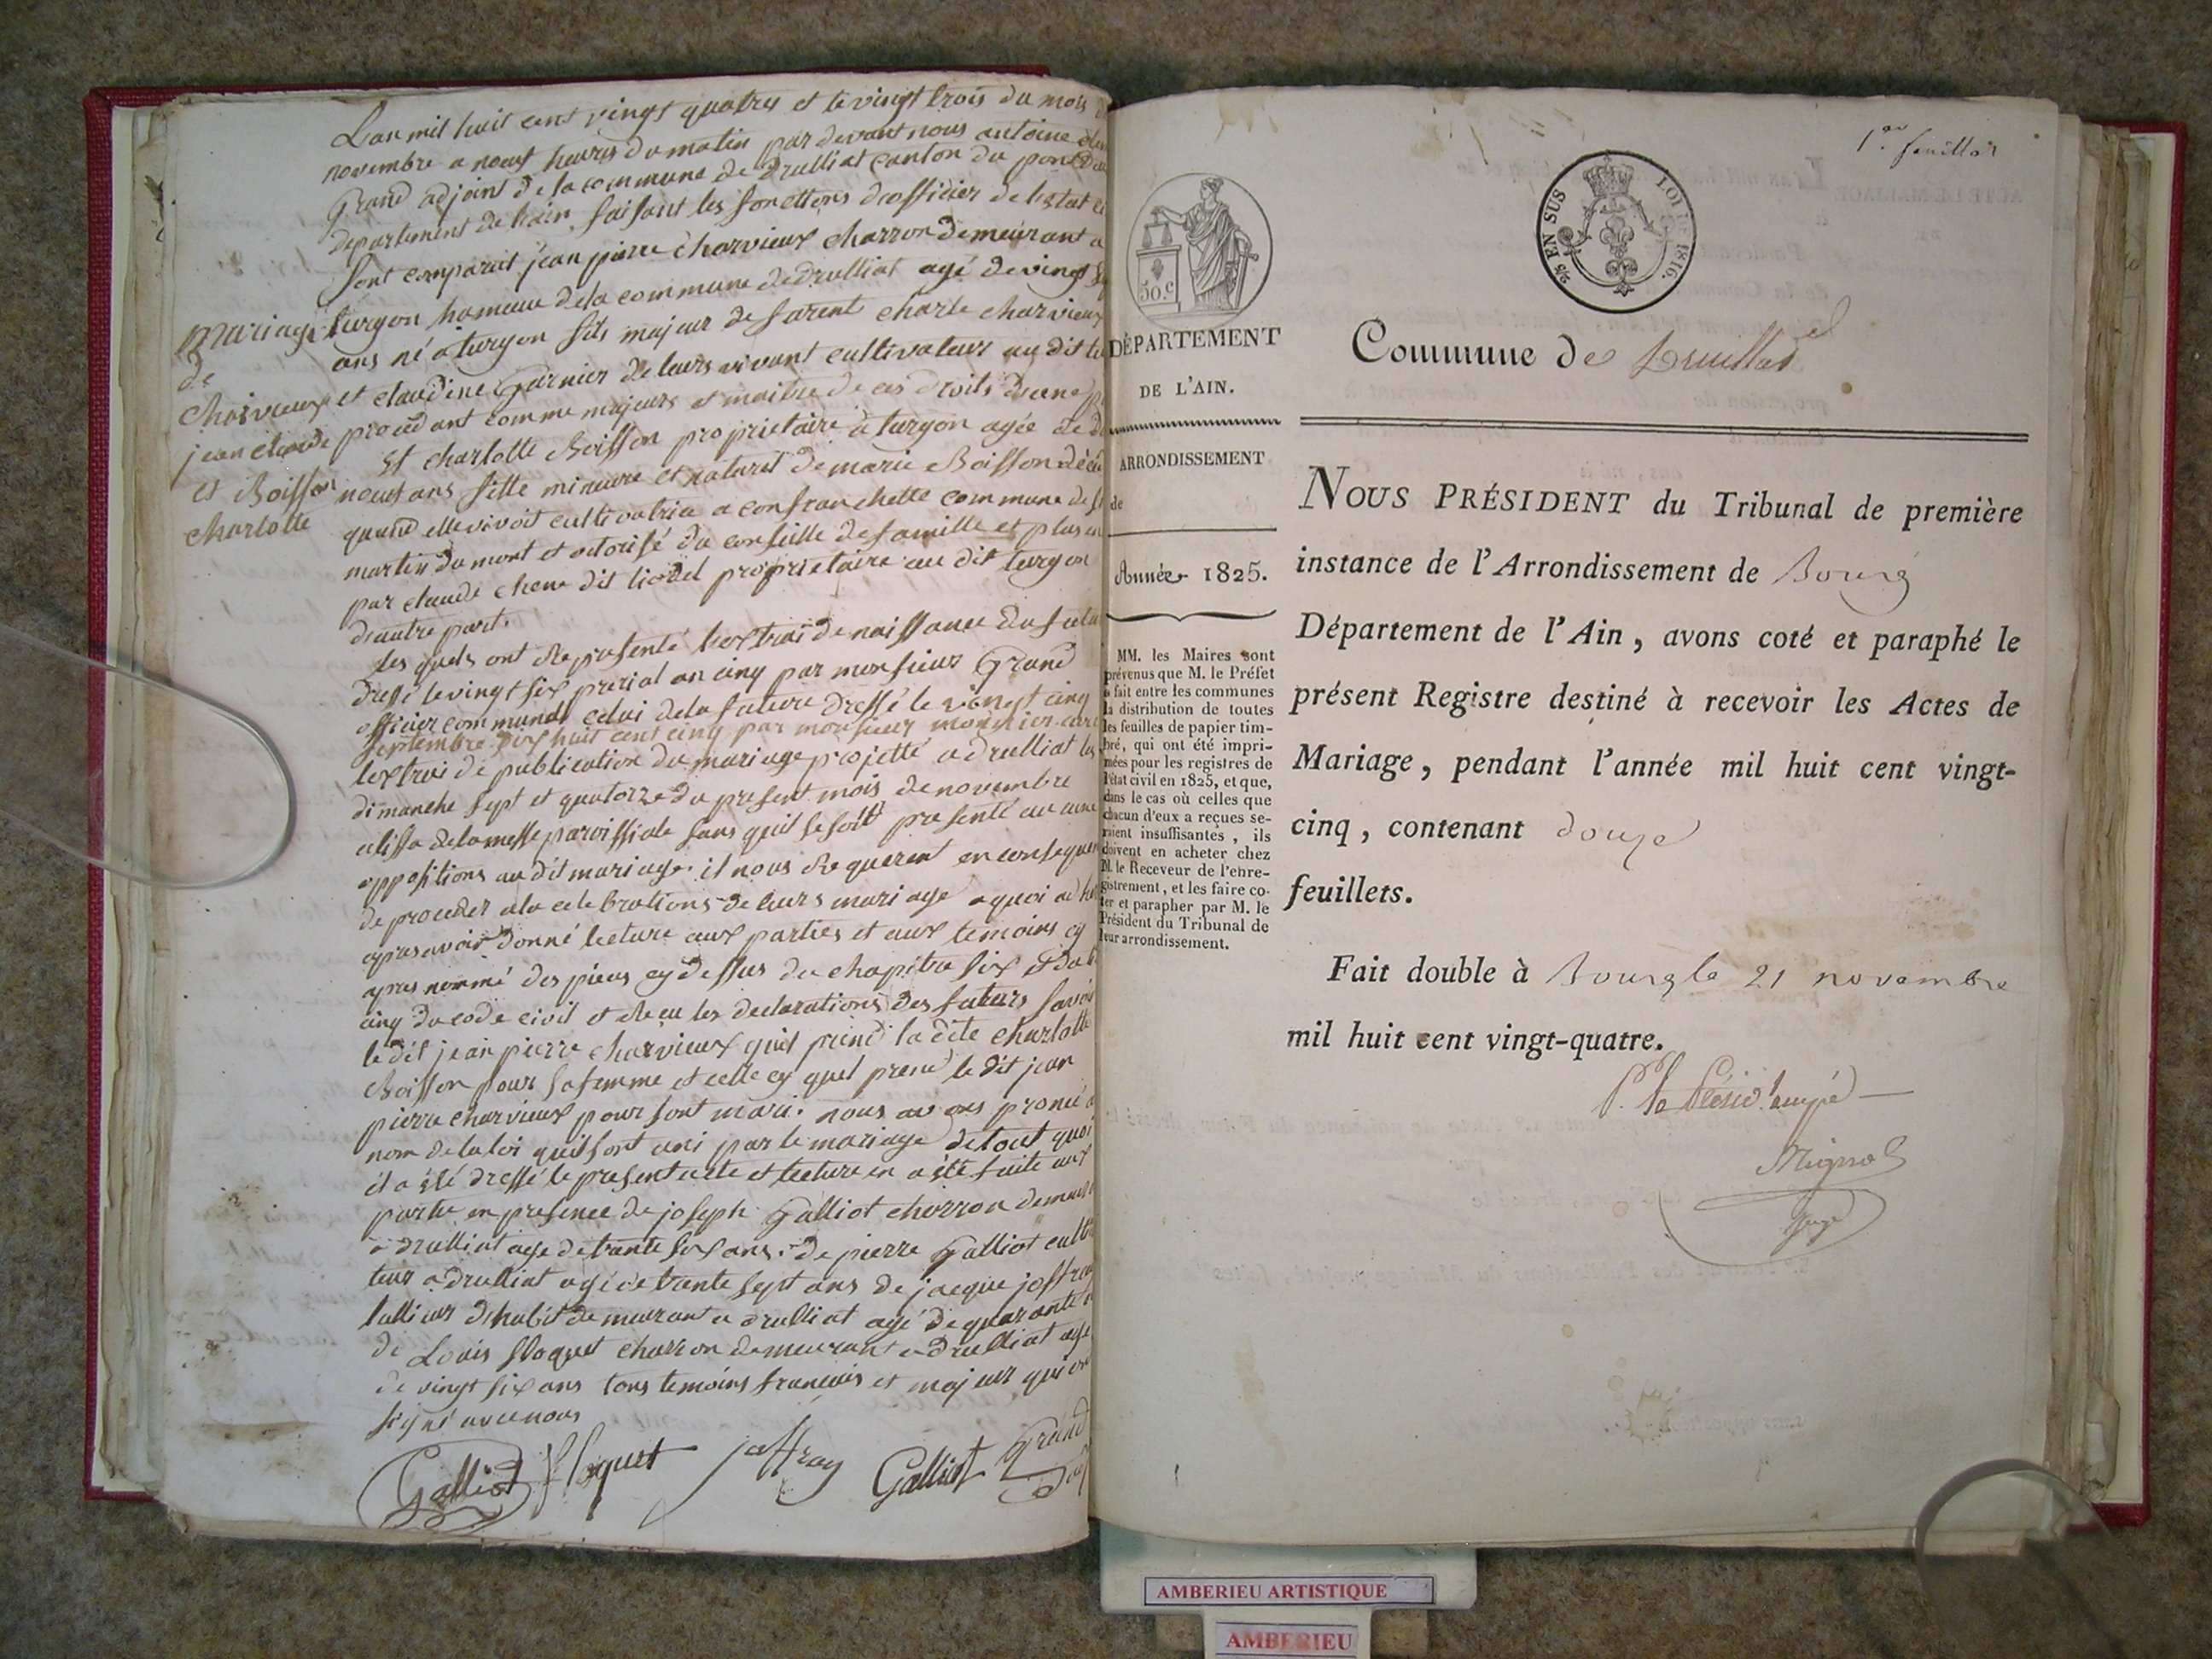 Lan mil huit cent vingt quatres et le vingt trois du mois
novembre a neuf heures du matin par devant nous antoine
Grand adjoint de la commune de drulliat canton du pont
departement de lain, faisant les fonctions dofficier de lestat
Sont comparut jean pierre charvieux charron demeurant a
turgon hameau dela commune de drulliat agé de vingt
ans né a turgon fils majeur de farent charle charvieux
et claudine Garnier de leurs vivant cultivateurs au dit
procedant comme majeurs et maitre de ces droits dune
Et charlotte Boisson proprietaire a turgon agée de
neuf ans fille mineure et naturel de marie Boisson
quand elle vivoit cultivatrice a confranchette commune de
martin du mont et otorisé du conseille de famille et plus
par claude chene dit liodel proprietaire au dit turgon
dautre part.
les quels ont Represente lextrai de naissance du
dressé le vingt six prerial an cinq par monsieur Grand
officier communal celui dela future dressé le vingt cinq
septembre dix huit cent cinq par monsieur
lextrai de publication du mariage projetté a drulliat les
dimanche sept et quatorze du present mois de novembre
alissa delamesse paroissiale sans quil se soit presenté aucune
oppositions au dit mariage. il nous Requerent en
de proceder ala celebrations de leurs mariage aquoi
apres avoir donné lecture aux parties et aux temoins cy
apres nommé des pieces cy dessus du chapitre six
cinq du code civil et Recu les declarations des futurs savoir
le dit jean pierre charvieux quil prend la dite charlotte
Boisson pour sa femme et celle cy quel prend le dit jean
pierre charvieux pour sont mari. nous avons
nom dela loi quil sont uni par le mariage de tout quoi
il a été dressé le present acte et lecture en a été faite aux
partie en presence de joseph Galliot charron
a drulliat age de trante six ans. de pierre Galliot
teur a drulliat agé de trante sept ans de jacque
tallieur dhabit demeurant a drulliat agé de quarante
de Louis floquet charron demeurant a drulliat age
de vingt six ans tous temoins francais et majeur qui
signé avec nous
Galliot floquet joffray Galliot Grand
Mariage
de
charvieux
jean claude
et Boisson
charlotte
1er feuillet
50.c
EN SUS LOI DE 1816.
DÉPARTEMENT
DE L'AIN.
ARRONDISSEMENT
de
Année 1825.
MM. les Maires sont
prévenus que M. le Préfet
a fait entre les communes
la distribution de toutes
les feuilles de papier tim-
bré, qui ont été impri-
mées pour les registres de
l'état civil en 1825, et que,
dans le cas où celles que
chacun d'eux a reçues se-
raient insuffisantes, ils
doivent en acheter chez
M. le Receveur de l'enre-
gistrement, et les faire co-
ter et parapher par M. le
Président du Tribunal de
leur arrondissement.
Commune de Druillat
NOUS PRÉSIDENT du Tribunal de première
instance de l'Arrondissement de Bourg
Département de l'Ain, avons coté et paraphé le
présent Registre destiné à recevoir les Actes de
Mariage, pendant l'année mil huit cent vingt-
cinq, contenant douze
feuillets.
Fait double à Bourg le 21 novembre
mil huit cent vingt-quatre.
AMBERIEU ARTISTIQUE
AMBERIEU